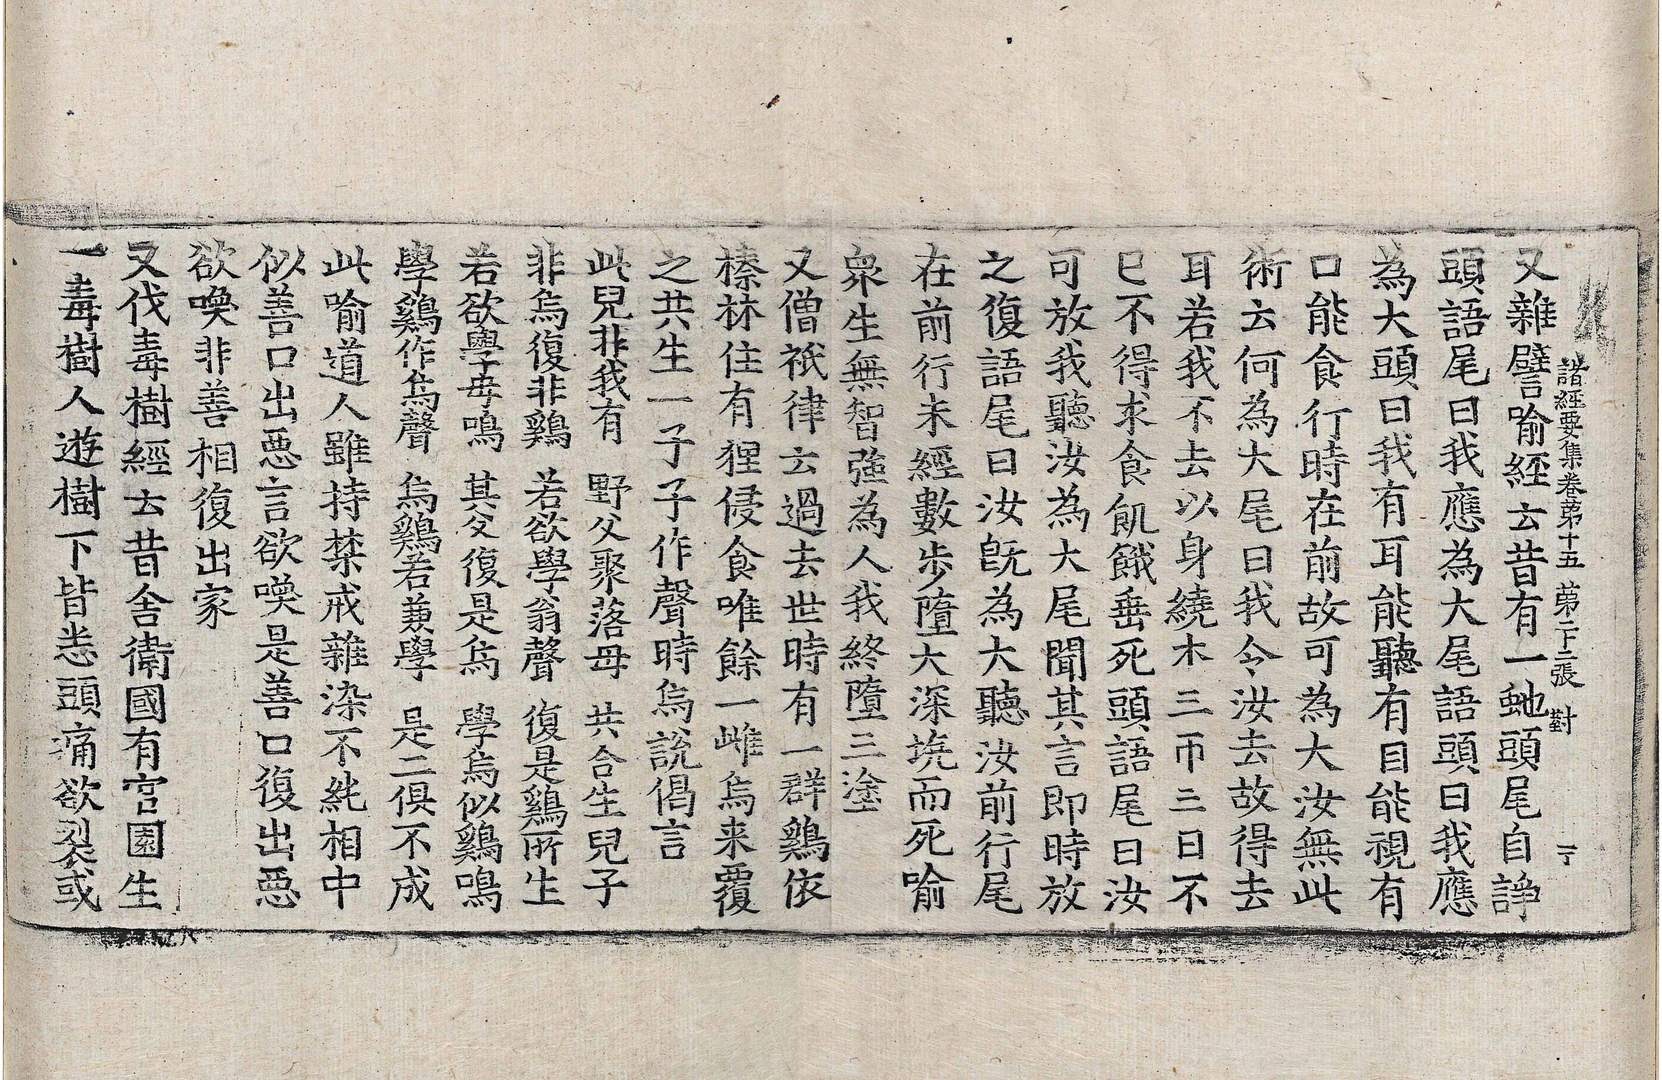 諸經要集卷苐十五 苐二十二張 對
又雜譬喻經云昔有一虵頭尾自諍
頭語尾曰我應為大尾語頭曰我應
為大頭曰我有耳能聽有目能視有
口能食行時在前故可為大汝無此
術云何為大尾曰我令汝去故得去
耳若我不去以身繞木三帀三日不
已不得求食飢餓垂死頭語尾曰汝
可放我聽汝為大尾聞其言即時放
之復語尾曰汝旣為大聽汝前行尾
在前行未經數步墮大深坑而死喻
衆生無智強為人我終墮三塗
又僧祇律云過去世時有一群鷄依
榛林住有狸侵食唯餘一雌烏来覆
之共生一子子作聲時烏說偈言
此兒非我有 野父聚落母 共合生兒子
非烏復非鷄 若欲學翁聲 復是鷄所生
若欲學母鳴 其父復是烏 學烏似鷄鳴
學鷄作烏聲 烏鷄若兼學 是二俱不成
此喻道人雖持禁戒雜染不純相中
似善口出惡言欲喚是善口復出惡
欲喚非善相復出家
又伐毒樹經云昔舍衛國有官園生
一毒樹人遊樹下皆恙頭痛欲裂或